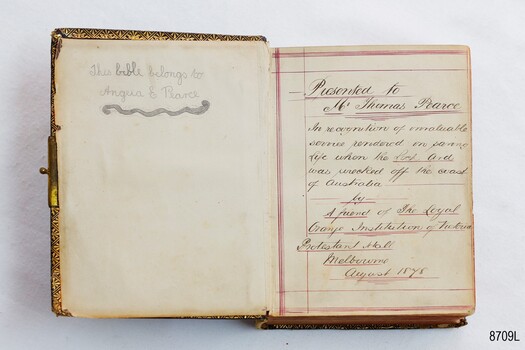 This bible belongs to
Angus E Pearce
Presented to
Mr Thomas Pearce
In recognition of invaluable
service rendered on saving
life when the Loch Ard
was wrecked off the coast
of Australia
by
A friend of The Loyal
Orange Institution of Victoria
Protestant Hall
Melbourne
August 1878
8709L